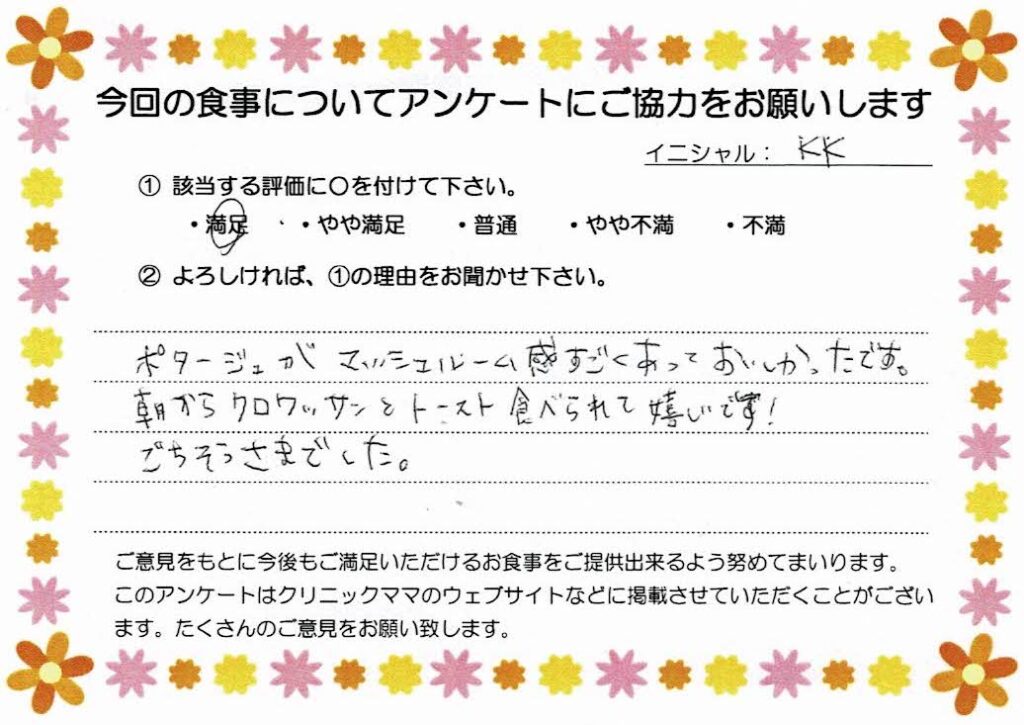 今回の食事についてアンケートにご協力をお願いします
イニシャル： KK
① 該当する評価に〇を付けて下さい。
・満足 ・やや満足 ・普通 ・やや不満 ・不満
② よろしければ、①の理由をお聞かせ下さい。
ポタージュがマッシュルーム感すごくあっておいしかったです。
朝からクロワッサンとトースト食べられて嬉しいです!
ごちそうさまでした。
ご意見をもとに今後もご満足いただけるお食事をご提供出来るよう努めてまいります。
このアンケートはクリニックママのウェブサイトなどに掲載させていただくことがござい
ます。たくさんのご意見をお願い致します。